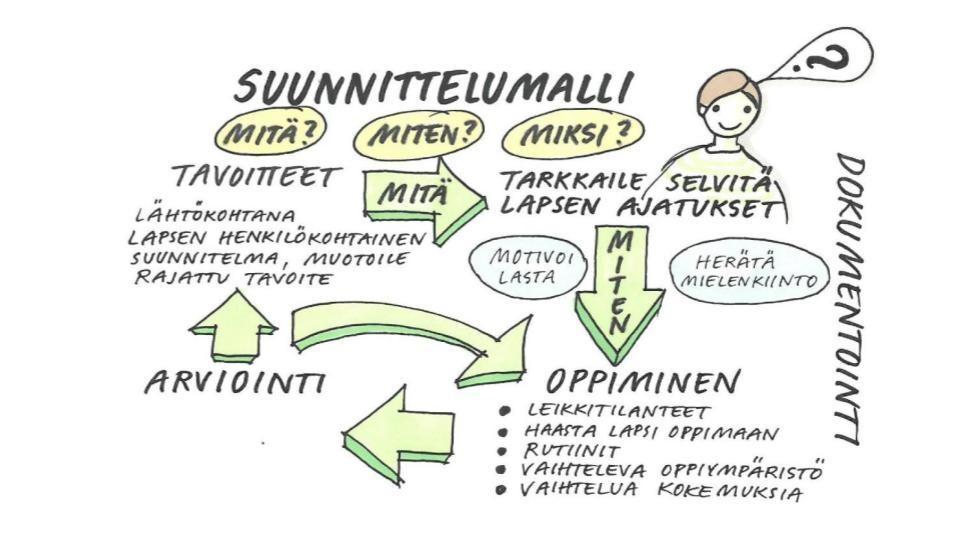 ?
SUUNNITTELUMALLI
MITÄ? MITEN? MIKSI?
TAVOITTEET
MITÄ
TARKKAILE SELVITÄ
LAPSEN AJATUKSET
LÄHTÖKOHTANA
LAPSEN HENKILÖKOHTAINEN
SUUNNITELMA, MUOTOILE
RAJATTU TAVOITE
MOTIVOI
LASTA
MITEN
HERÄTÄ
MIELENKIINTO
DOKUMENTOINTI
ARVIOINTI
OPPIMINEN
• LEIKKITILANTEET
• HAASTA LAPSI OPPIMAAN
• RUTIINIT
• VAIHTELEVA OPPIYMPÄRISTÖ
• VAIHTELUA KOKEMUKSIA